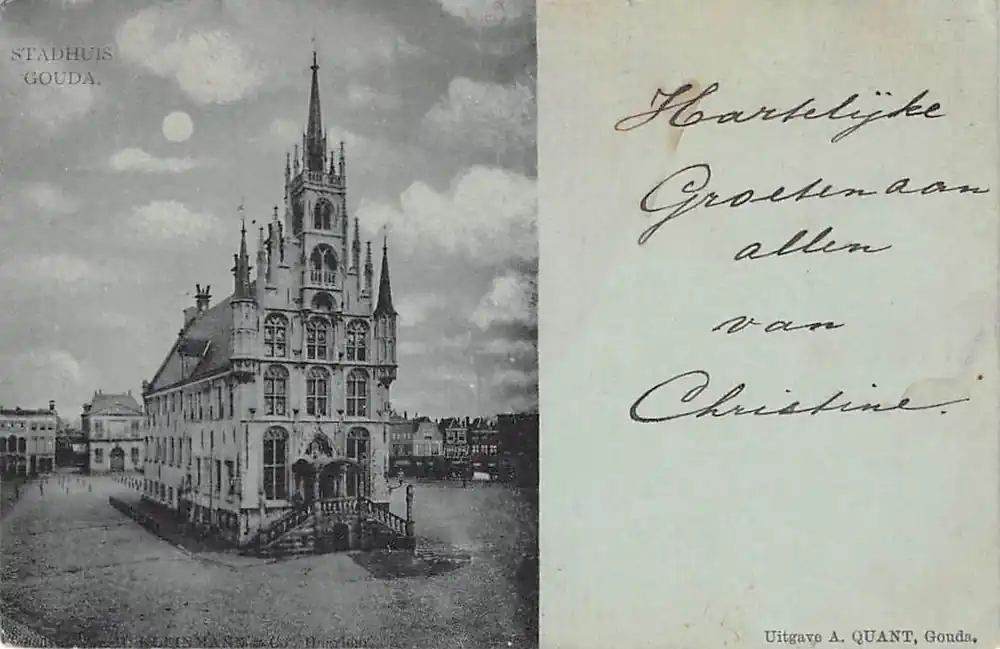 STADHUIS
GOUDA.
Hartelijke
Groeten aan
allen
van
Christine.
KLEINMANN & Co., Haarlem.
Uitgave A. QUANT, Gouda.